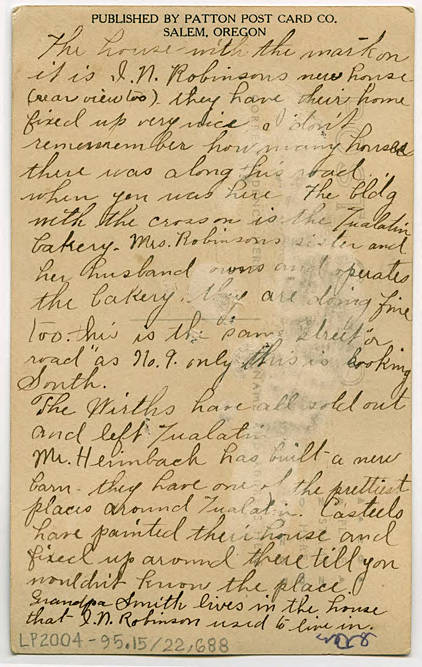 PUBLISHED BY PATTON POST CARD CO.
SALEM, OREGON
The house with the mark on
it is I. N. Robinsons new house
(rear view too). they have their home
fixed up very nice. I don't
rememember how many houses
there was along this road
when you was here. The bldg
with the cross on is the Tualatin
bakery. Mrs. Robinsons sister and
her husband owns and operates
the bakery. they are doing fine
too. this is the same street "or
road" as No. 9. only this is looking
South.
The Wirths have all sold out
and left Tualatin
Mr. Heimback has built a new
barn. they have one of the prettiest
places around Tualatin. Casteels
have painted their house and
fixed up around there till you
wouldn't know the place.
Grandpa Smith lives in the house
that I. N. Robinson used to live in.
LP2004-95.15/22,688